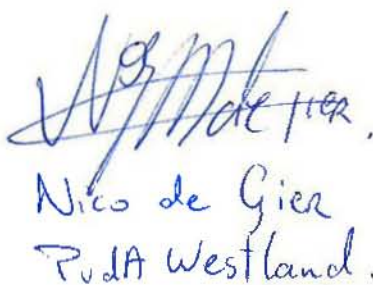 Nico de Gier
PvdA Westland.